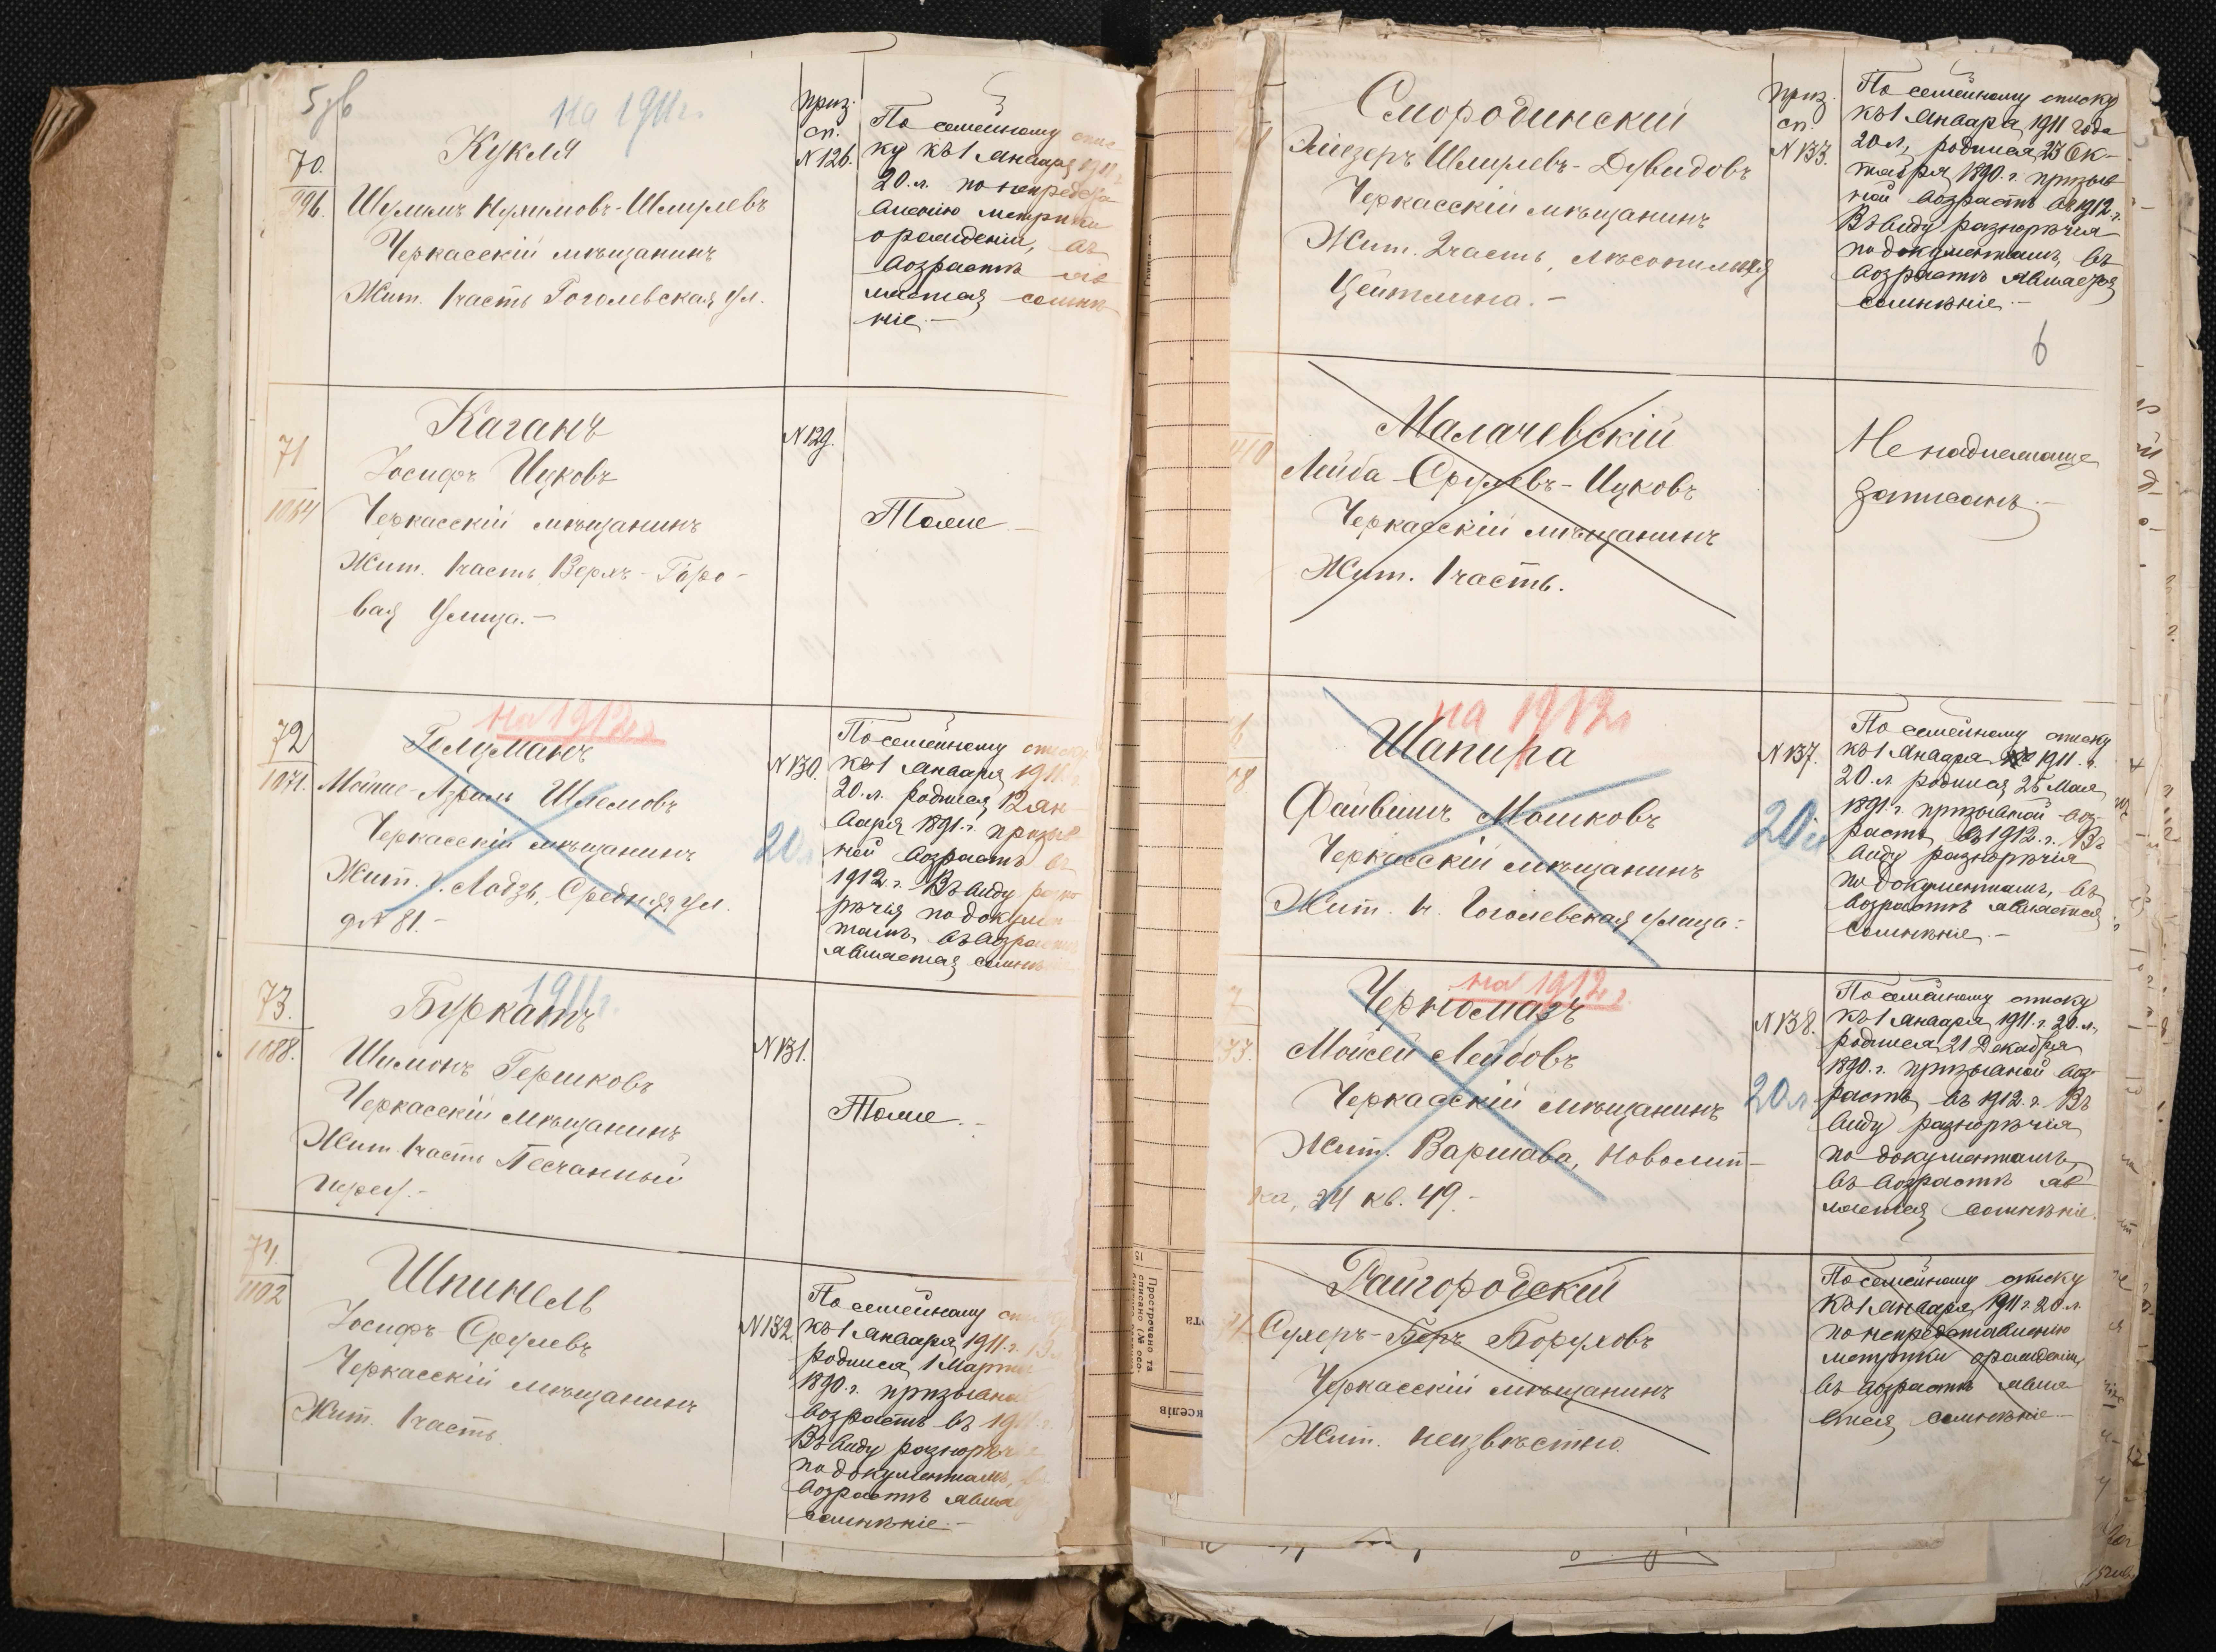 5 зв
на 1911 г.
70.
996.
Кукля
Шулимъ Нухимовъ-Шмулевъ
Черкасскій мѣщанинъ
Жит. 1 часть Гоголевская ул.
приз.
сп.
N 126.
По семейному спис-
ку къ 1 Января 1911 г.
20. л. по непредста
вленію метрики
о рожденіи, въ
возрастѣ яв
ляется сомнѣ
ніе.-
71
1064
Каганъ
Іосифъ Ицковъ
Черкасскій мѣщанинъ
Жит. 1 часть Верхъ-Горо-
вая улица.-
N 129.
Тоже.-
на 1912 г
72
1071.
Гельманъ
Мойше-Азріиль Шлемовъ
Черкасскій мѣщанинъ
Жит. г. Лодзь, Средняя ул.
д N 81.-
N 130.
20 л
По семейному списку
къ 1 Января 1911 г.
20. л. родился 12 Ян
варя 1891. г. призыв
ной возрастъ въ
1912 г. Въ виду разно
рѣчія по докумен
тамъ, въ возрастѣ
является сомнѣніе
1911 г.
73.
1088.
Буркатъ
Шимонъ Гершковъ
Черкасскій мѣщанинъ
Жит. 1 часть Песчанный
переу.-
N 131.
Тоже.-
74.
1102
Шпинель
Іосифъ Срулевъ
Черкасскій мѣщанинъ
Жит. 1 часть.
N 132.
По семейному списку
къ 1 Января 1911. г.
родился 1 Марта
1890. г. призывной
возрастъ въ 1911 г.
Въ виду разнорѣчія
по документамъ, въ
возрастѣ являе
сомнѣніе.-
Смородинскій
Эліезеръ Шмулевъ-Дувидовъ
Черкасскій мѣщанинъ
Жит. 2 часть, лѣсопильня
Цейтлина.-
приз.
сп.
N 133.
По семейному списку
къ 1 Января 1911 года
20 л., родился 23 Ок-
тября 1890. г. призыв
ной возрастъ въ 1912 г.
Въ виду разнорѣчія
по документамъ, въ
возрастѣ является
сомнѣніе.-
6
Малачевскій
Лейба Срулевъ-Ицковъ
Черкасскій мѣщанинъ
Жит. 1 часть.
Не надлежаще
записанъ.-
на 1912 г
Шапира
Файвишъ Мошковъ
Черкасскій мѣщанинъ
Жит. 1 ч. Гоголевская улица.-
N 137.
20 л
По семейному списку
къ 1 Января 1911. г.
20. л. родился 25 Мая
1891. г. призывной воз-
растъ въ 1912. г. Въ
виду разнорѣчія
по документамъ, въ
возрастѣ является
сомнѣніе.-
на 1912 г.
Черномазъ
Мойсей Лейбовъ
Черкасскій мѣщанинъ
Жит. Варшава, Новолип-
ка, 24 кв. 49.-
N 138.
20 л
По семейному списку
къ 1 Января 1911. г. 20. л.
родился 21 Декабря
1890. г. призывной воз-
растъ въ 1912. г. Въ
виду разнорѣчія
по документамъ,
въ возрастѣ яв
ляется сомнѣніе.
Райгородскій
Сухеръ-Беръ Боруховъ
Черкасскій мѣщанинъ
Жит. неизвѣстно
По семейному списку
къ 1 Января 1911 г. 20 л.
по непредставленію
метрики о рожденіи,
въ возрастѣ явля
ется сомнѣніе.-